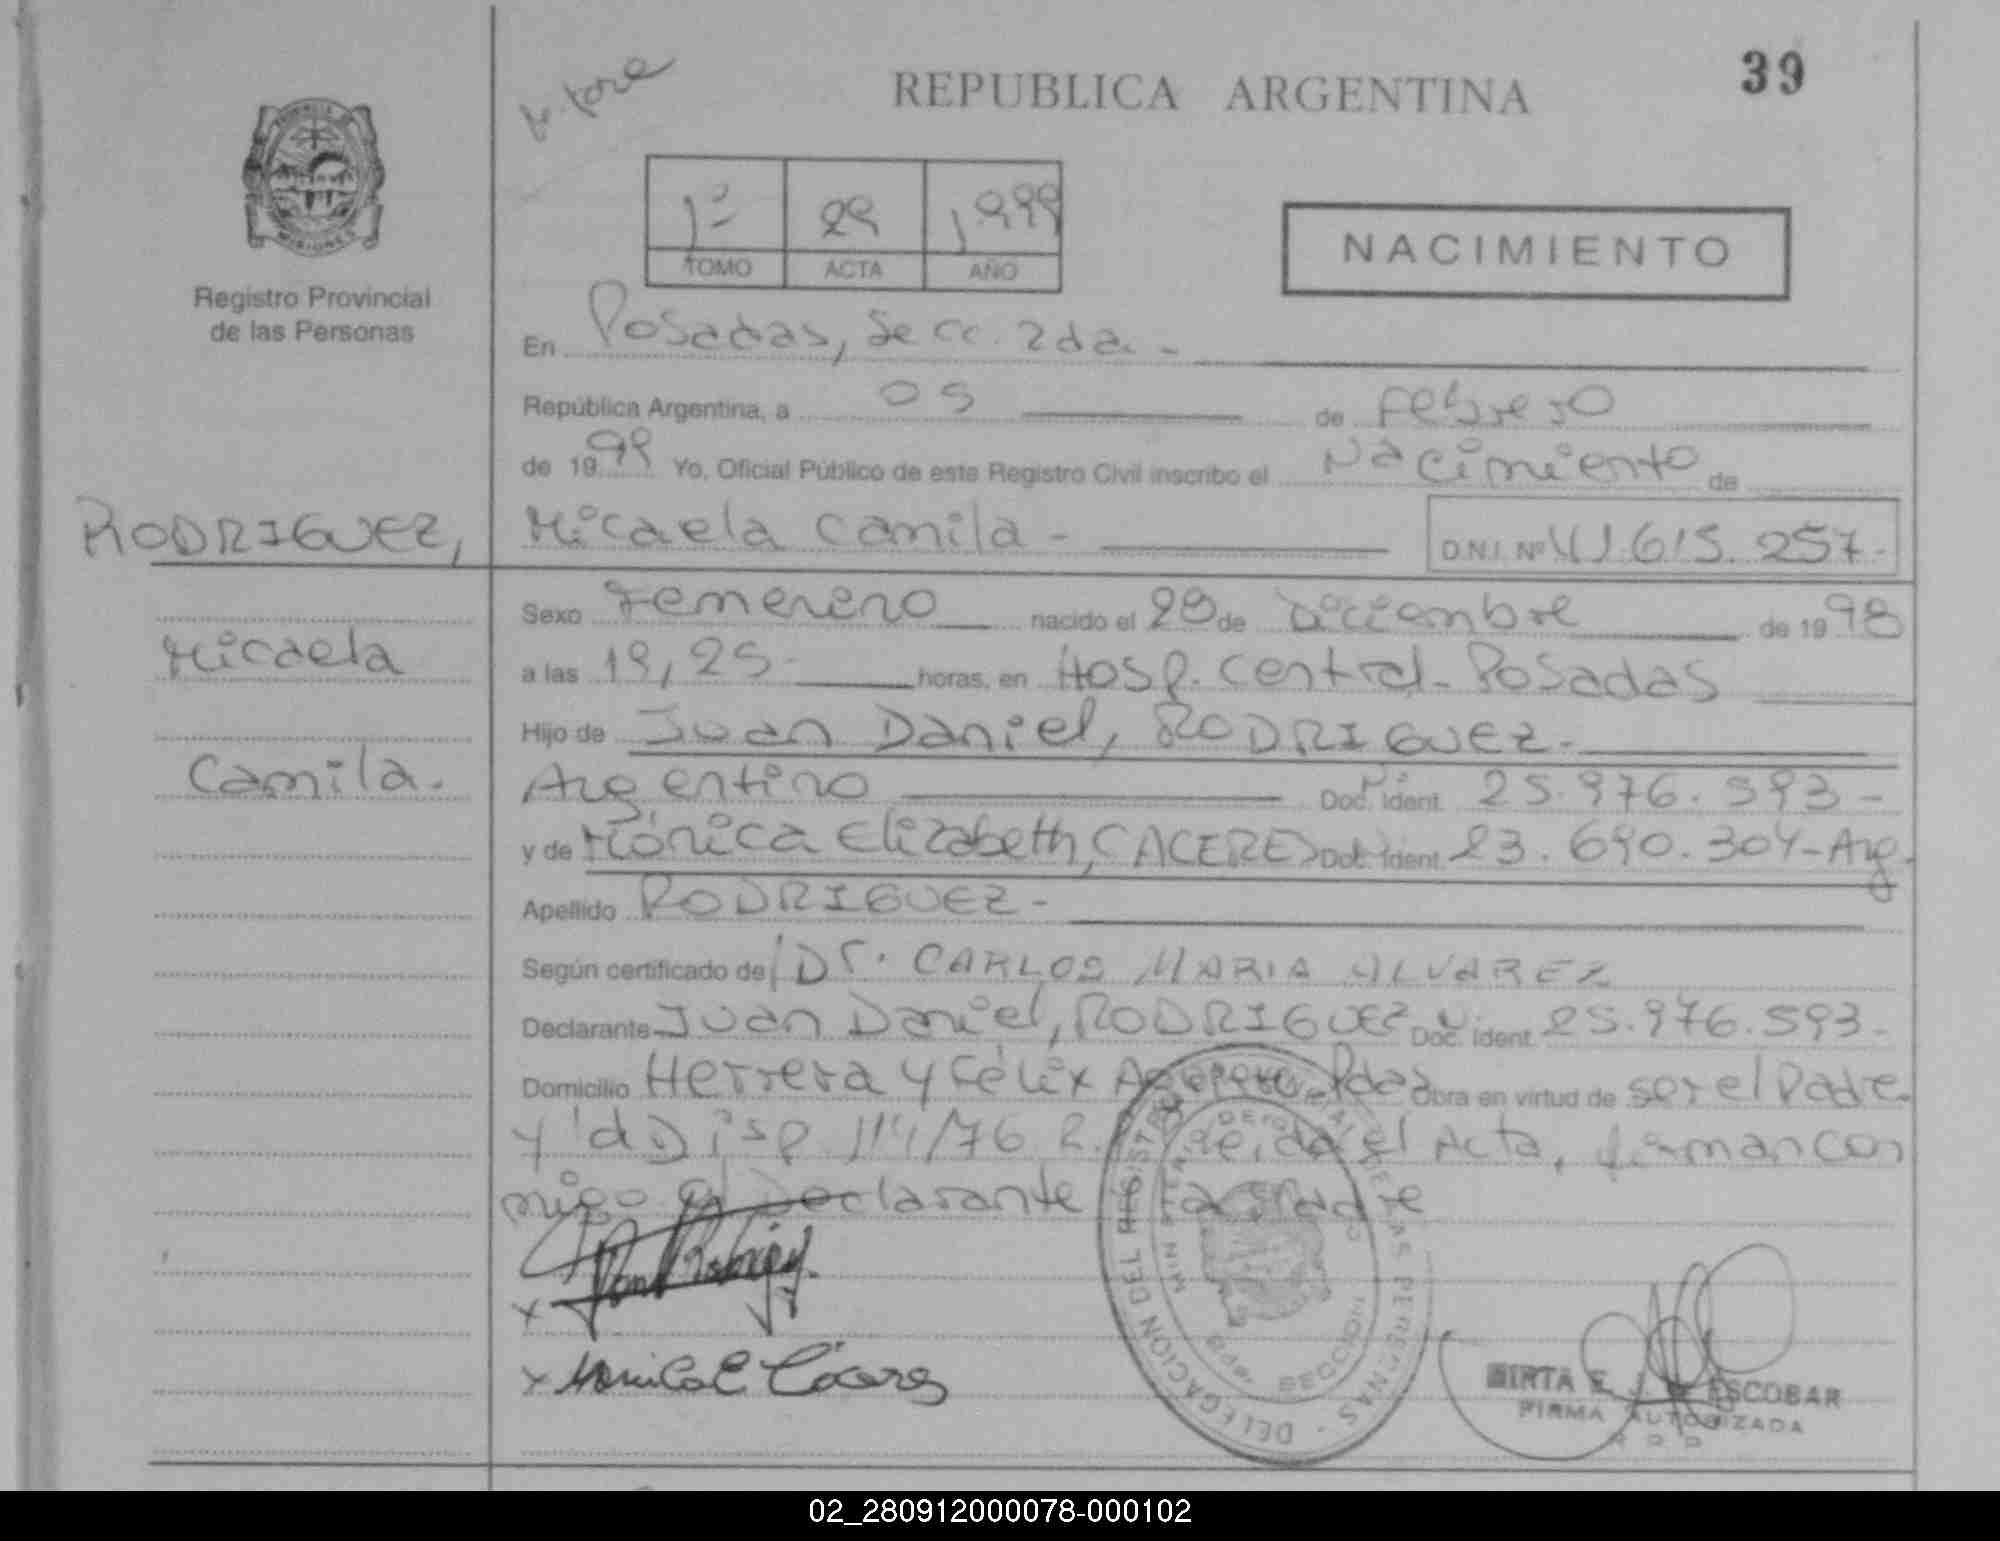 39
REPUBLICA ARGENTINA
1º 29 1999
TOMO ACTA AÑO
NACIMIENTO
MISIONES
Registro Provincial
de las Personas
En Posadas, Secc. 2da. -
República Argentina, a 05 de Febrero
de 1999 Yo, Oficial Público de este Registro Civil inscribo el Nacimiento de
RODRIGUEZ, Micaela Camila - D.N.I. Nº 41.615.257.-
Sexo Femenino nacido el 29 de Diciembre de 1998
Micaela
a las 19,25- horas, en Hosp. Central - Posadas
Hijo de Juan Daniel, RODRIGUEZ.-
Camila.
Argentino Doc. Ident. 25.976.593-
y de Mónica Elizabeth, CACERES Doc. Ident. 23.690.304-Arg.
Apellido RODRIGUEZ-
Según certificado de Dr. CARLOS MARIA ALVAREZ
Declarante Juan Daniel, RODRIGUEZ Doc. Ident. 25.976.593-
Domicilio Herrera y Félix Pdas Obra en virtud de ser el Padre
y Disp. /76 Leida el Acta, firman con
migo el Declarante y la Madre
x
x Monica E Cáceres
DELEGACION DEL REGISTRO PROVINCIAL DE LAS PERSONAS
MINISTERIO DE
SECCION
MIRTA E. J. DE ESCOBAR
FIRMA AUTORIZADA
R P P
02_280912000078-000102